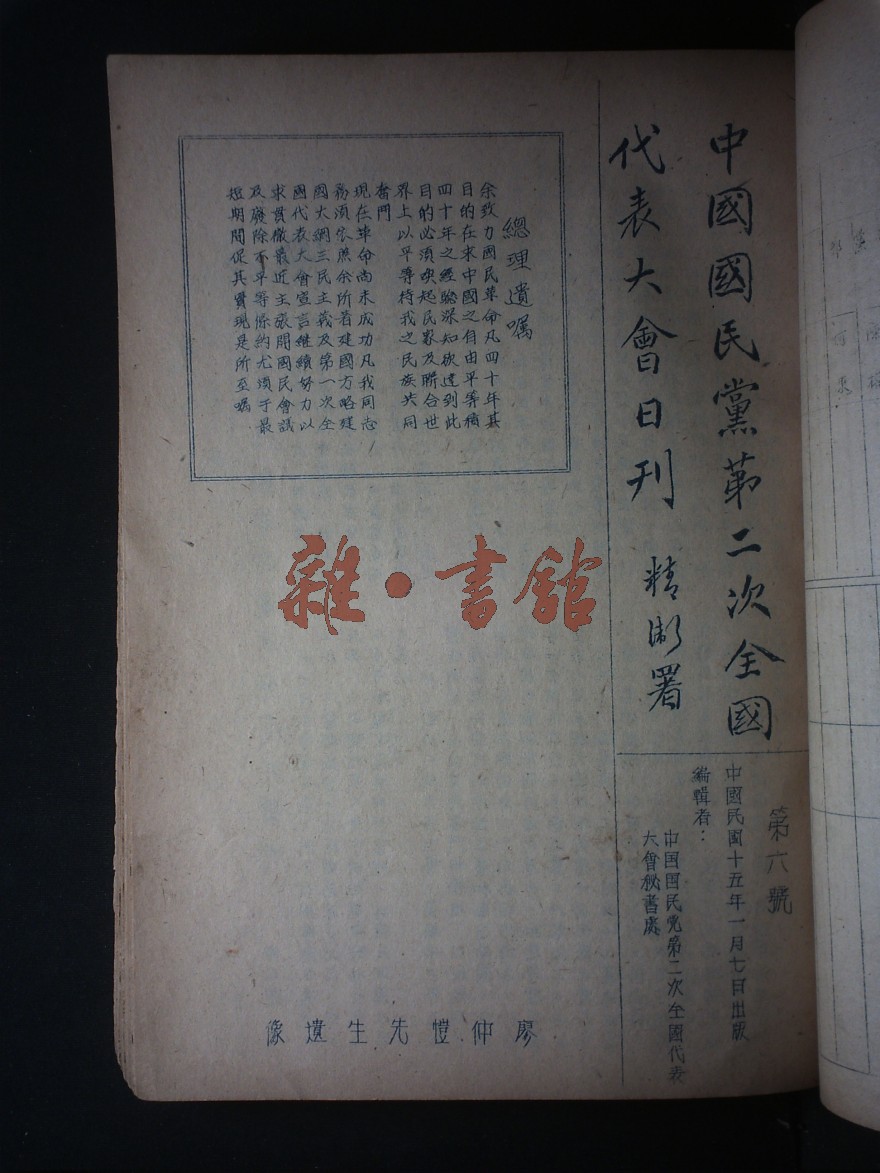 中國國民黨苐二次全國
代表大會日刊 精衛署
第六號
中國民國十五年一月七日出版
編輯者：
中国国民党第二次全國代表
大會秘書處
總理遺囑
余致力國民革命凡四十年其
目的在求中國之自由平等積
四十年之經驗深知欲達到此
目的必須喚起民衆及聯合世
界上以平等待我之民族共同
奮鬥
現在革命尚未成功凡我同志
務須依照余所著建國方略建
國大綱三民主義及第一次全
國代表大會宣言繼續努力以
求貫徹最近主張開國民會議
及廢除不平等條約尤須于最
短期間促其實現是所至囑
雜·書館
廖仲愷先生遺像